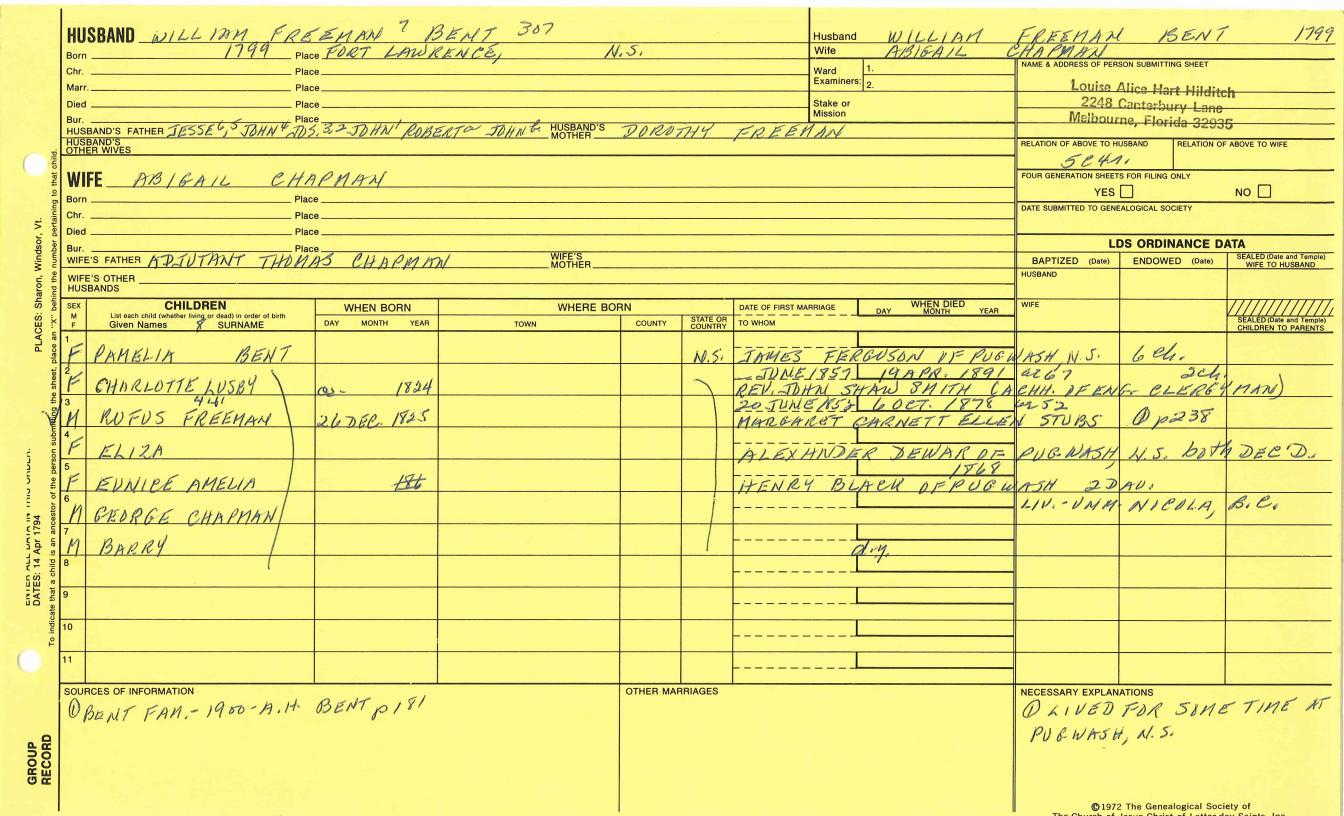 HUSBAND WILLIAM FREEMAN 7 BENT 307
Born 1799 Place FORT LAWRENCE, N.S.
Chr. Place
Marr. Place
Died Place
Bur. Place
HUSBAND'S FATHER JESSE 6, 5 JOHN 4 JOS. 3, 2 JOHN 1 ROBERT a JOHN b HUSBAND'S MOTHER DOROTHY FREEMAN
HUSBAND'S OTHER WIVES
Husband WILLIAM FREEMAN BENT 1799
Wife ABIGAIL CHAPMAN
Ward Examiners: 1.
2.
Stake or Mission
NAME & ADDRESS OF PERSON SUBMITTING SHEET
Louise Alice Hart Hilditch
2248 Canterbury Lane
Melbourne, Florida 32935
RELATION OF ABOVE TO HUSBAND RELATION OF ABOVE TO WIFE
5C4r.
FOUR GENERATION SHEETS FOR FILING ONLY
YES NO
DATE SUBMITTED TO GENEALOGICAL SOCIETY
WIFE ABIGAIL CHAPMAN
Born Place
Chr. Place
Died Place
Bur. Place
WIFE'S FATHER ADJUTANT THOMAS CHAPMAN WIFE'S MOTHER
WIFE'S OTHER HUSBANDS
LDS ORDINANCE DATA
BAPTIZED (Date) ENDOWED (Date) SEALED (Date and Temple) WIFE TO HUSBAND
HUSBAND
WIFE
SEALED (Date and Temple) CHILDREN TO PARENTS
SEX M F CHILDREN WHEN BORN WHERE BORN DATE OF FIRST MARRIAGE WHEN DIED
List each child (whether living or dead) in order of birth DAY MONTH YEAR
Given Names 8 SURNAME DAY MONTH YEAR TOWN COUNTY STATE OR COUNTRY TO WHOM
1 F PAMELIA BENT N.S. JAMES FERGUSON OF PUGWASH N.S. 6 ch.
2 JUNE 1857 19 APR. 1891 ae 67 2 ch.
F CHARLOTTE LUSBY ca. 1824 REV. JOHN SHAW SMITH (A CHH. OF ENG. CLERGYMAN)
3 441 20 JUNE 1852 6 OCT. 1878 ae 52
M RUFUS FREEMAN 26 DEC. 1825 MARGARET GARNETT ELLEN STUBS ① p238
4 F ELIZA ALEXANDER DEWAR OF PUGWASH, N.S. both DEC'D.
5 1868
F EUNICE AMELIA 186 HENRY BLACK OF PUGWASH 2 DAU.
6 M GEORGE CHAPMAN LIV.-UNM. NICOLA, B.C.
7 M BARRY d.y.
8
9
10
11
SOURCES OF INFORMATION
① BENT FAM.- 1900-A.H. BENT p181
OTHER MARRIAGES
NECESSARY EXPLANATIONS
① LIVED FOR SOME TIME AT
PUGWASH, N.S.
©1972 The Genealogical Society of
The Church of Jesus Christ of Latter-day Saints, Inc.
PLACES: Sharon, Windsor, Vt.
ENTER ALL DATA IN THIS ORDER:
DATES: 14 Apr 1794
To indicate that a child is an ancestor of the person submitting the sheet, place an "X" behind the number pertaining to that child.
GROUP
RECORD